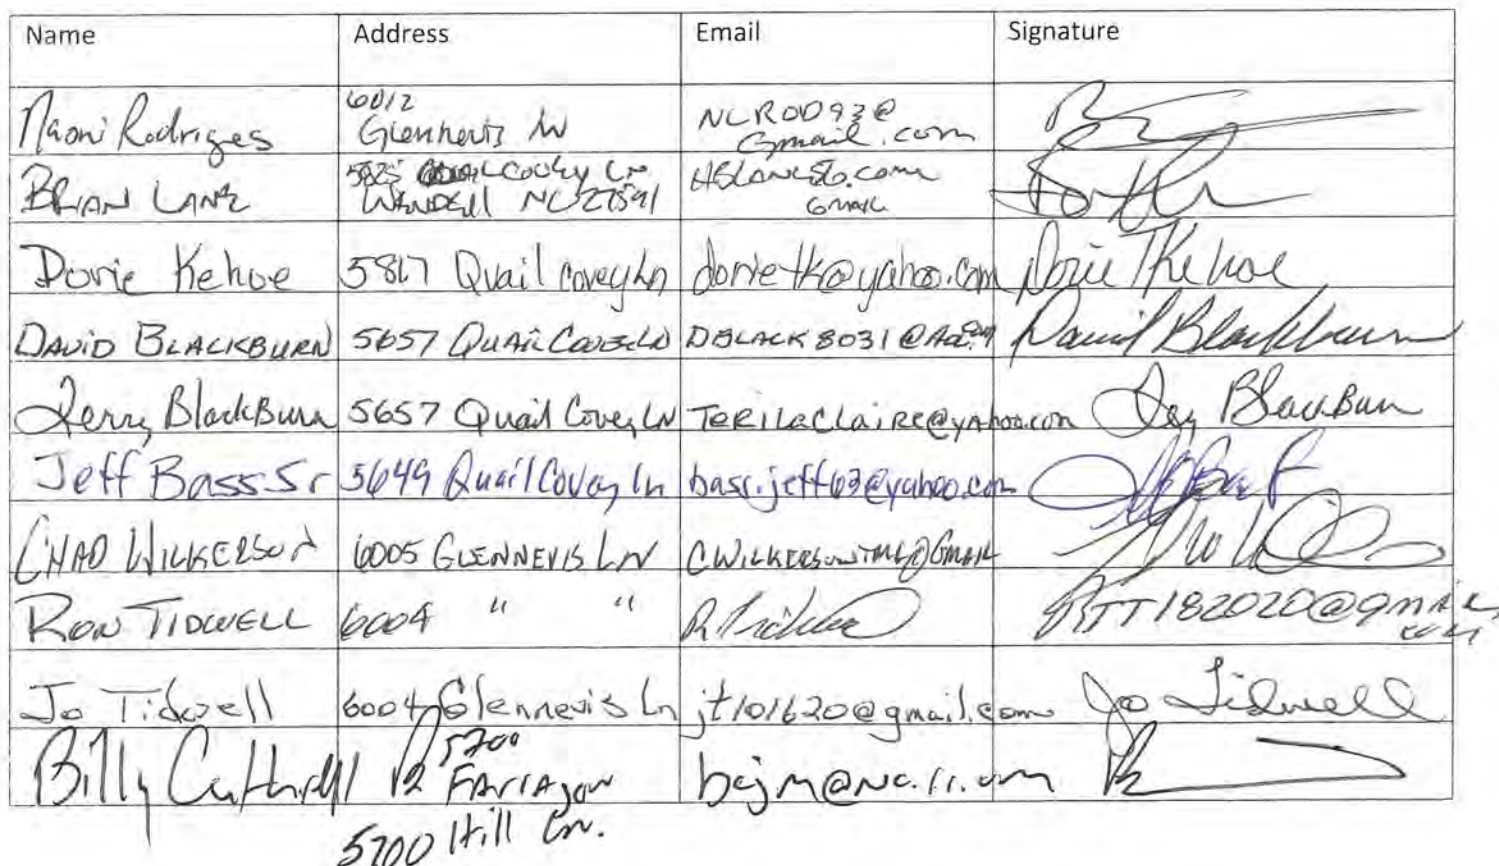 Name Address Email Signature
Naoni Rodriges 6012 Glennevis Ln NLROD93@ Gmail.com
BRIAN LANE 5825 COVEY LN WENDELL NC 27591 GMAIL
Dorie Kehoe 5817 Quail Covey Ln dorietk@yahoo.com Dorie T Kehoe
DAVID BLACKBURN 5657 QUAIL COVEY LN DBLACK8031@AOL. David Blackburn
Terry BlackBurn 5657 Quail Covey LN TERILaClaiRe@yahoo.com BlackBurn
Jeff Bass Sr 5649 Quail Covey Ln bass.jeff63@yahoo.com
CHAD WILKERSON 6005 GLENNEVIS LN CWILKERSONTML@GMAIL
RON TIDWELL 6004 " " RTT182020@gmail.com
Jo Tidwell 6004 Glennevis Ln jt101620@gmail.com Jo Tidwell
Billy 5700 bcjm@nc.rr.com
5700 Hill Ln.